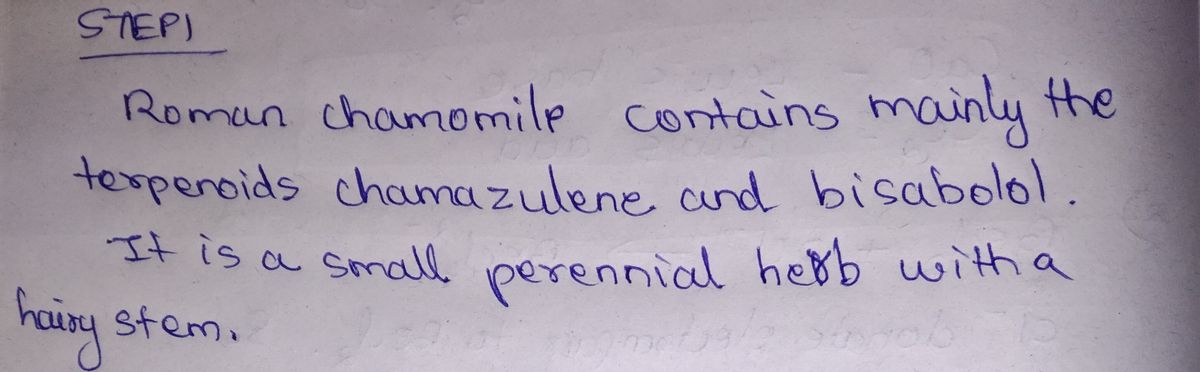 STEP1
Roman chamomile contains mainly the
terpenoids chamazulene and bisabolol.
It is a small perennial herb with a
hairy stem.